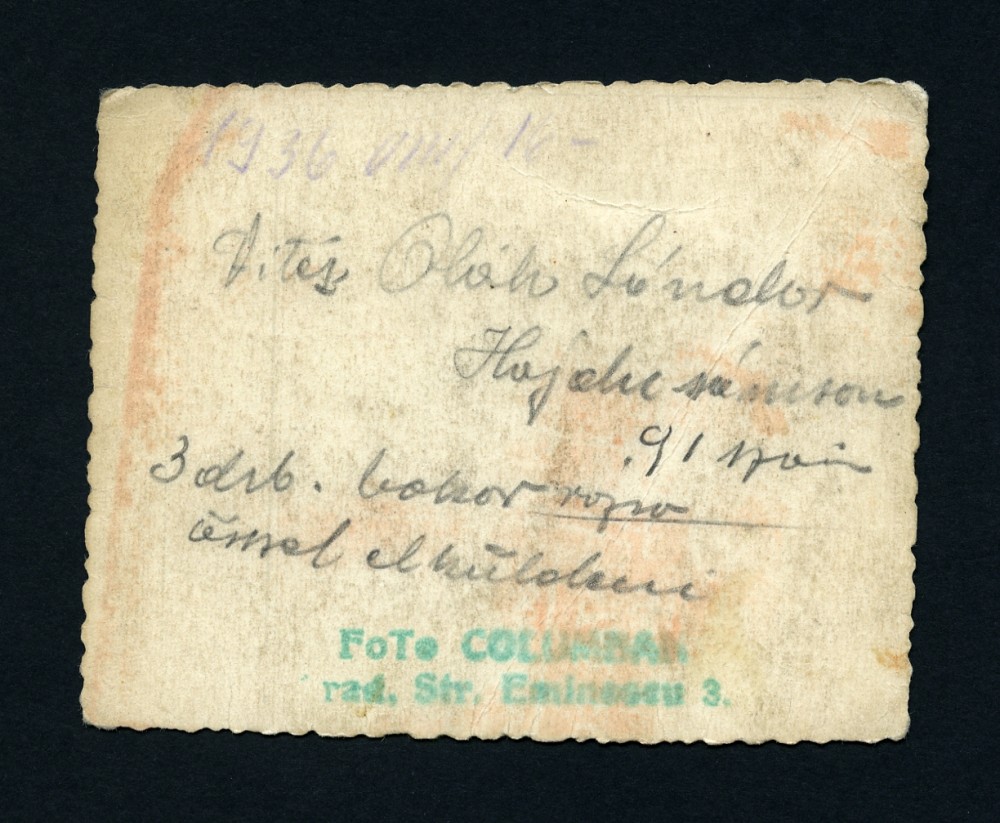 1936 16-
Vitéz Oláh Sándor
Hajdu sámson
91 szám
3 drb. bokor rózsa
ősszel elküldeni
FoTo COLUMBAN
rad. Str. Eminescu 3.